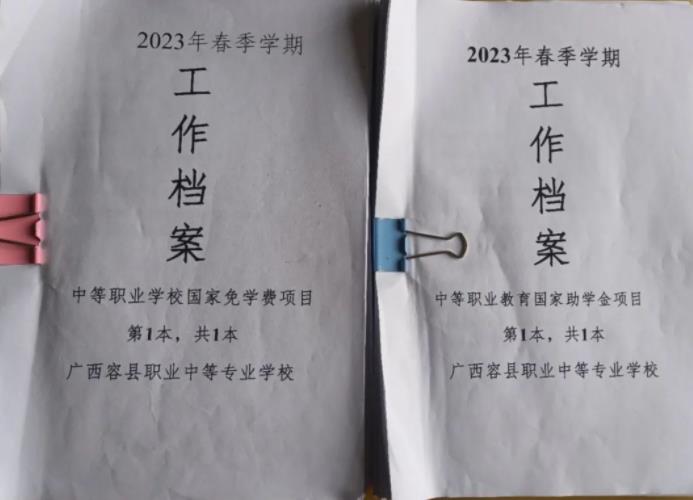 2023年春季学期
工
作
档
案
中等职业学校国家免学费项目
第1本，共1本
广西容县职业中等专业学校
2023年春季学期
工
作
档
案
中等职业教育国家助学金项目
第1本，共1本
广西容县职业中等专业学校